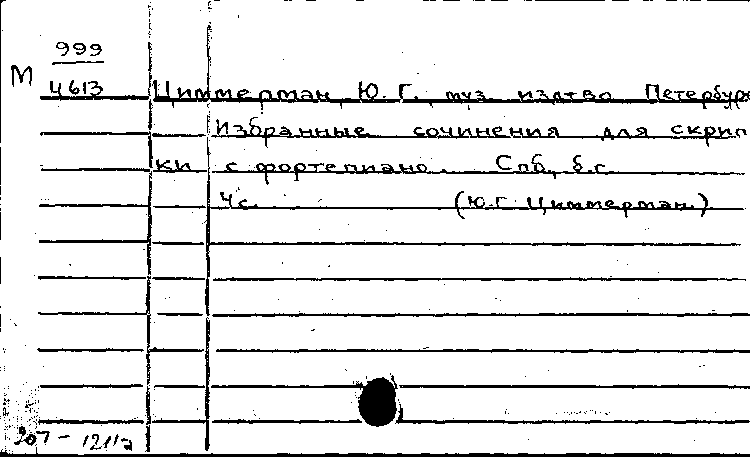 999
М
Ц613 Циммерман, Ю. Г., муз. издтво Петербург
Избранные сочинения для скрип-
ки с фортепиано. Спб., б.г.
4с. (Ю.Г. Циммерман.)
207-